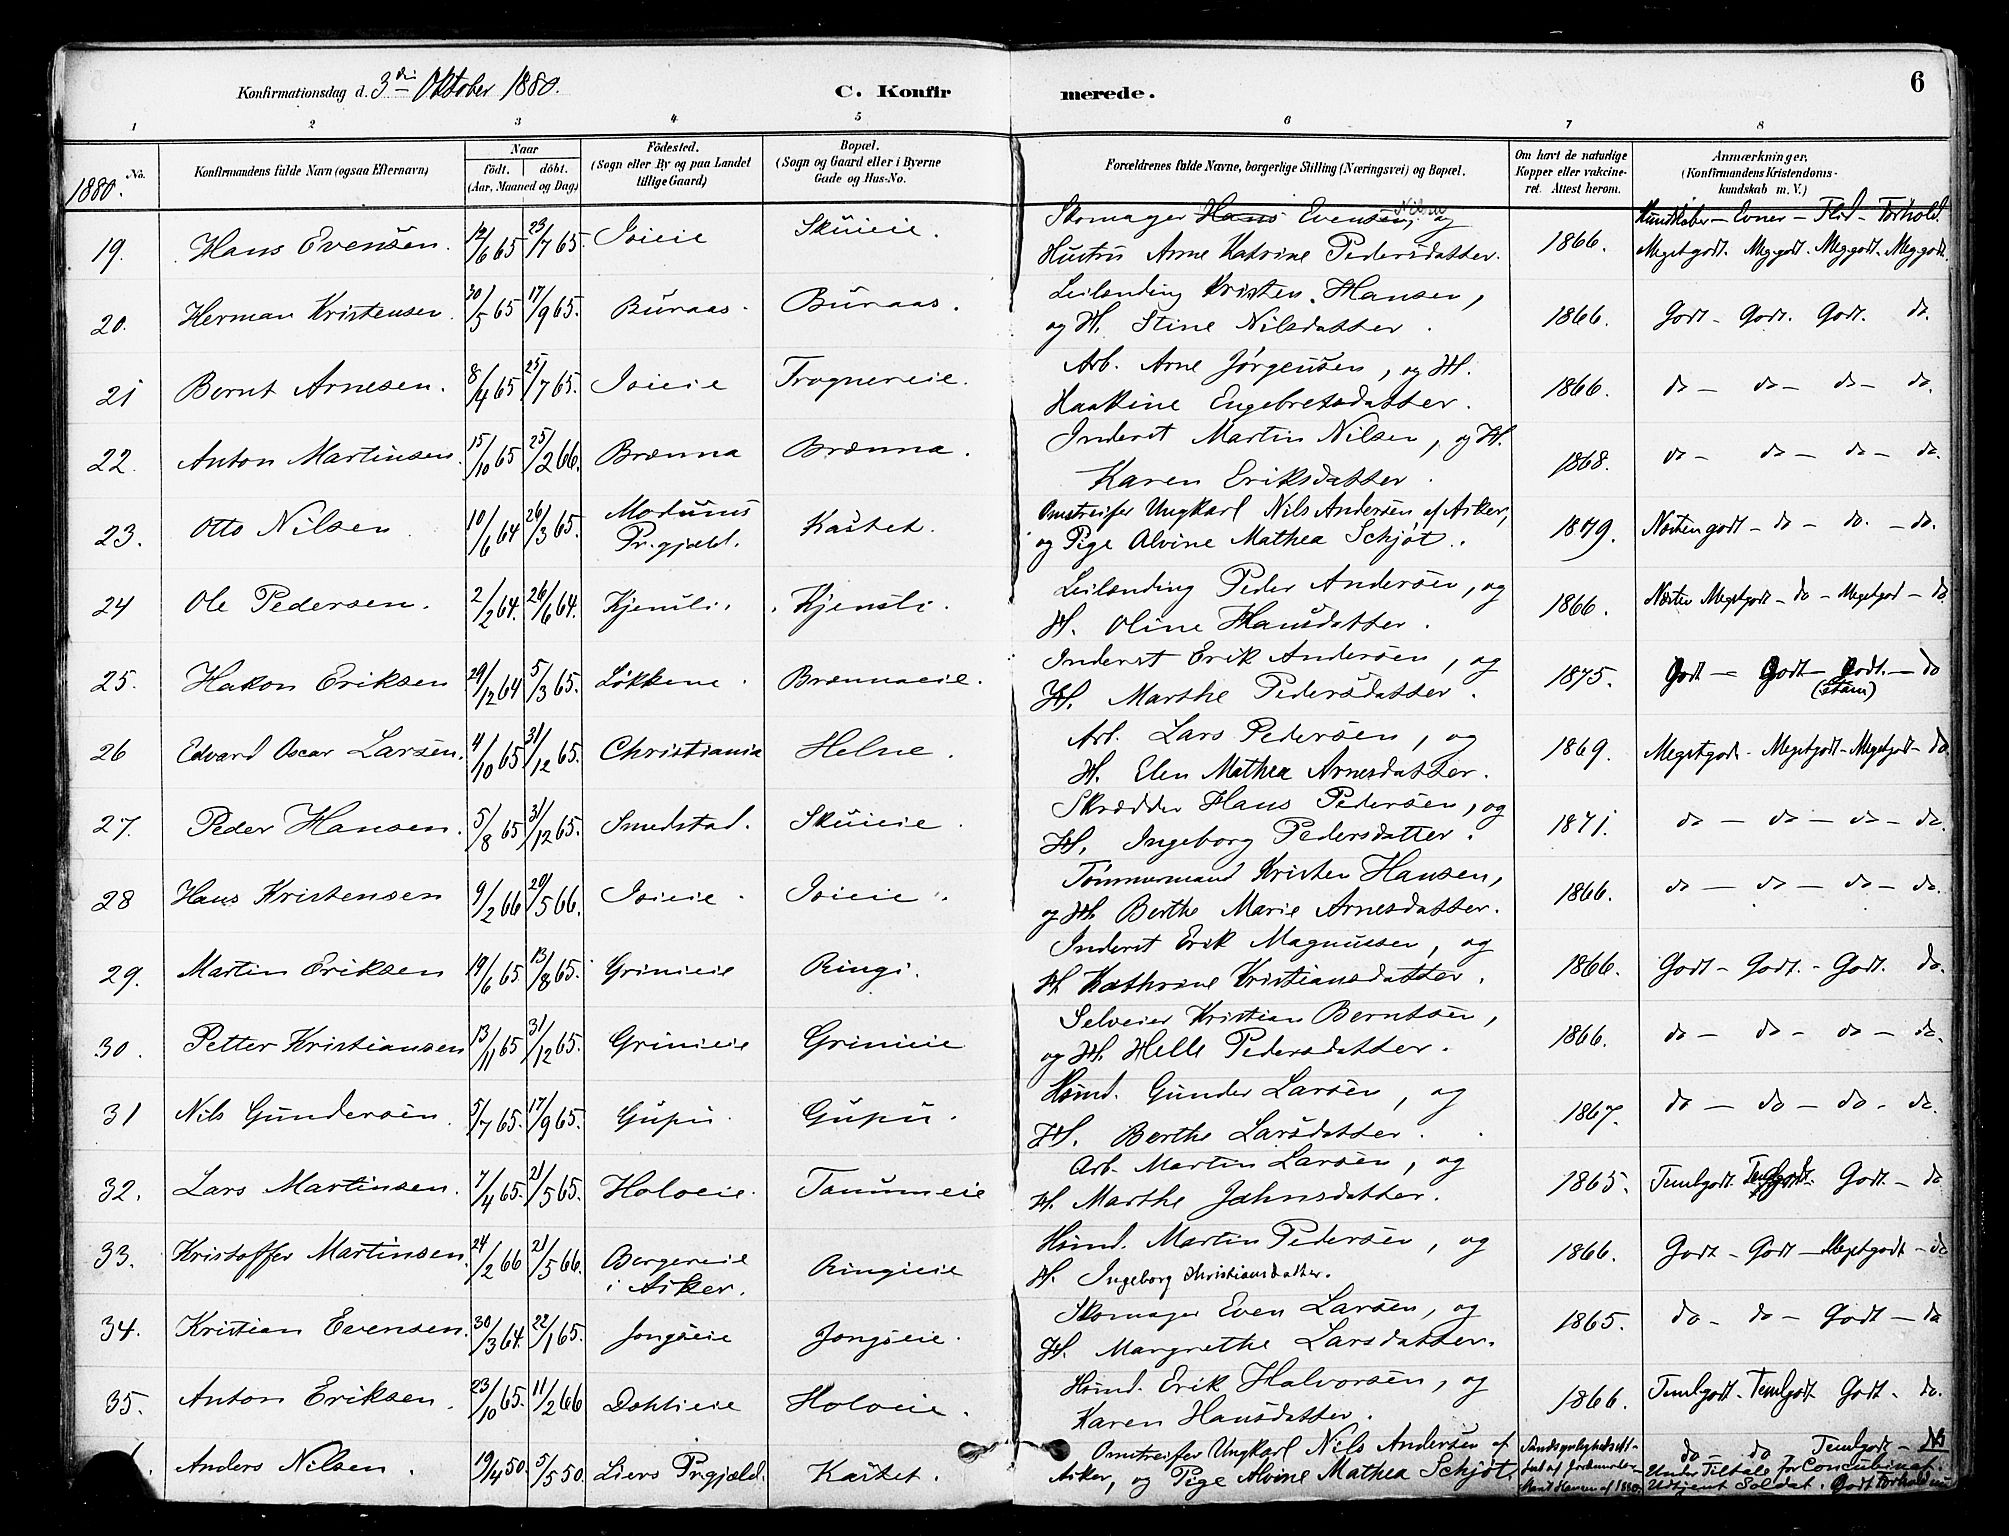 6
Konfirmationsdag d. 3die Oktober 1880.
C. Konfirmerede.
1 2 3 4 5 6 7 8
No. Konfirmandens fulde Navn (ogsaa Efternavn) Naar født. døbt. (Aar, Maaned og Dag) Födested. (Sogn eller By og paa Landet tillige Gaard) Bopæl. (Sogn og Gaard eller i Byerne Gade og Hus-No. Forældrenes fulde Navne, borgerlige Stilling (Næringsvei) og Bopæl. Om havt de naturlige Kopper eller vaccineret. Attest herom. Anmærkninger. (Konfirmandens Kristendomskundskab m. V.)
1880.
Kundskaber - Evner - Flid - Forhold.
19. Hans Evensen. 12/6 65 23/7 65. Ioieie Skuieie. Skomager Hans Evensen, Nilsen og
Hustru Anne Katrine Pedersdatter. 1866. Megetgodt. Meg.godt. Meg.godt. Meg.godt.
20. Herman Kristensen. 30/5 65 17/9 65. Buraas. Buraas. Leilænding Kristen Hansen,
og H. Stine Nilsdatter. 1866. Godt - Godt. Godt. do.
21 Bernt Arnesen. 8/4 65 25/7 65. Ioieie Trognereie. Arb. Arne Jørgensen, og H.
Haakine Engebretsdatter. 1866. do - do - do - do.
22. Anton Martinsen. 15/10 65 25/2 66. Brænna Brænna. Inderst Martin Nilsen, og H.
Karen Eriksdatter. 1868. do - do - do - do.
23. Otto Nilsen 10/6 64 26/3 65. Modums Pr.gjæld. Kastet. Omstreifer Ungkarl Nils Andersen af Asker,
og Pige Alvine Mathea Schjøt. 1879. Næsten godt - do - do. - do.
24 Ole Pedersen. 2/2 64. 26/6 64. Kjensli. Kjensli. Leilænding Peder Andersen, og
H. Oline Hansdatter. 1866. Næsten Megetgodt - do - Megetgod - do
25. Hakon Eriksen 29/12 64 5/3 65. Løkkene. Brænnaeie. Inderst Erik Andersen, og
H. Marthe Pedersdatter. 1875. Godt - Godt - Godt. - do
26 Edvard Oscar Larsen. 4/10 65 31/12 65. Christiania Helne. Arb. Lars Pedersen, og
H. Elen Mathea Arnesdatter. 1869. Megetgodt - Megetgodt - Megetgodt - do
27. Peder Hansen. 5/8 65 31/12 65. Smedstad. Skuieie. Skrædder Hans Pedersen, og
H. Ingeborg Pedersdatter. 1871. do - do - do - do.
28 Hans Kristensen 9/2 66 20/5 66. Ioieie. Ioieie. Tømmermand Kristen Hansen,
og H. Berthe Marie Arnesdatter. 1866. do - do - do - do.
29. Martin Eriksen 19/6 65. 13/8 65. Grinieie Ringi. Inderst Erik Magnussen, og
H. Kathrine Kristiansdatter. 1866. Godt - Godt. - Godt. do.
30. Petter Kristiansen 13/11 65 31/12 65. Grinieie Grinieie Selveier Kristian Berntsen,
og H. Helle Pedersdatter. 1866. do - do - do - do.
31 Nils Gundersen. 5/7 65. 17/9 65. Gupu. Gupu. Hsmd. Gunder Larsen, og
H. Berthe Larsdatter. 1867. do - do - do - do.
32. Lars Martinsen. 7/4 65. 21/5 65. Holoeie. Tanumeie Arb. Martin Larsen, og
H. Marthe Jahnsdatter. 1865. Temlgodt. Temlgodt. Godt. - do
33. Kristoffer Martinsen. 24/2 66 21/5 66. Bergereie i Asker. Ringieie Hsmd. Martin Pedersen, og
H. Ingeborg Christiansdatter. 1866. Godt - Godt - Megetgodt - do
34. Kristian Evensen. 30/3 64. 22/1 65. Jongseie Jongseie. Skomager Even Larsen, og
H. Margrethe Larsdatter. 1865. do - do - Godt - do
35. Anton Eriksen. 23/10 65. 11/2 66 Dahlieie Holoeie. Hsmd. Erik Halvorsen, og
Karen Hansdatter. 1866. Temlgodt - Temlgodt Godt - do.
Anders Nilsen. 19/4 50. 5/5 50. Liers Pr.gjæld. Kastet. Omstreifer Ungkarl Nils Andersen af
Asker, og Pige Alvine Mathea Schjøt. do - do Temlgodt -
Under Tiltale for Concubinat.
Udtjent Soldat. Godt Forhold nu